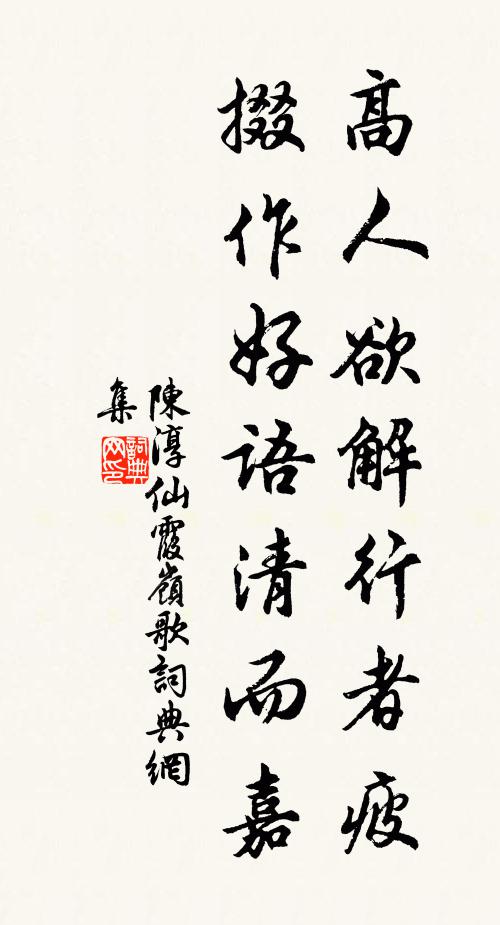 高人欲解行者疲
掇作好語清而嘉
陳淳仙霞嶺歌詞典網
集
詞典網印